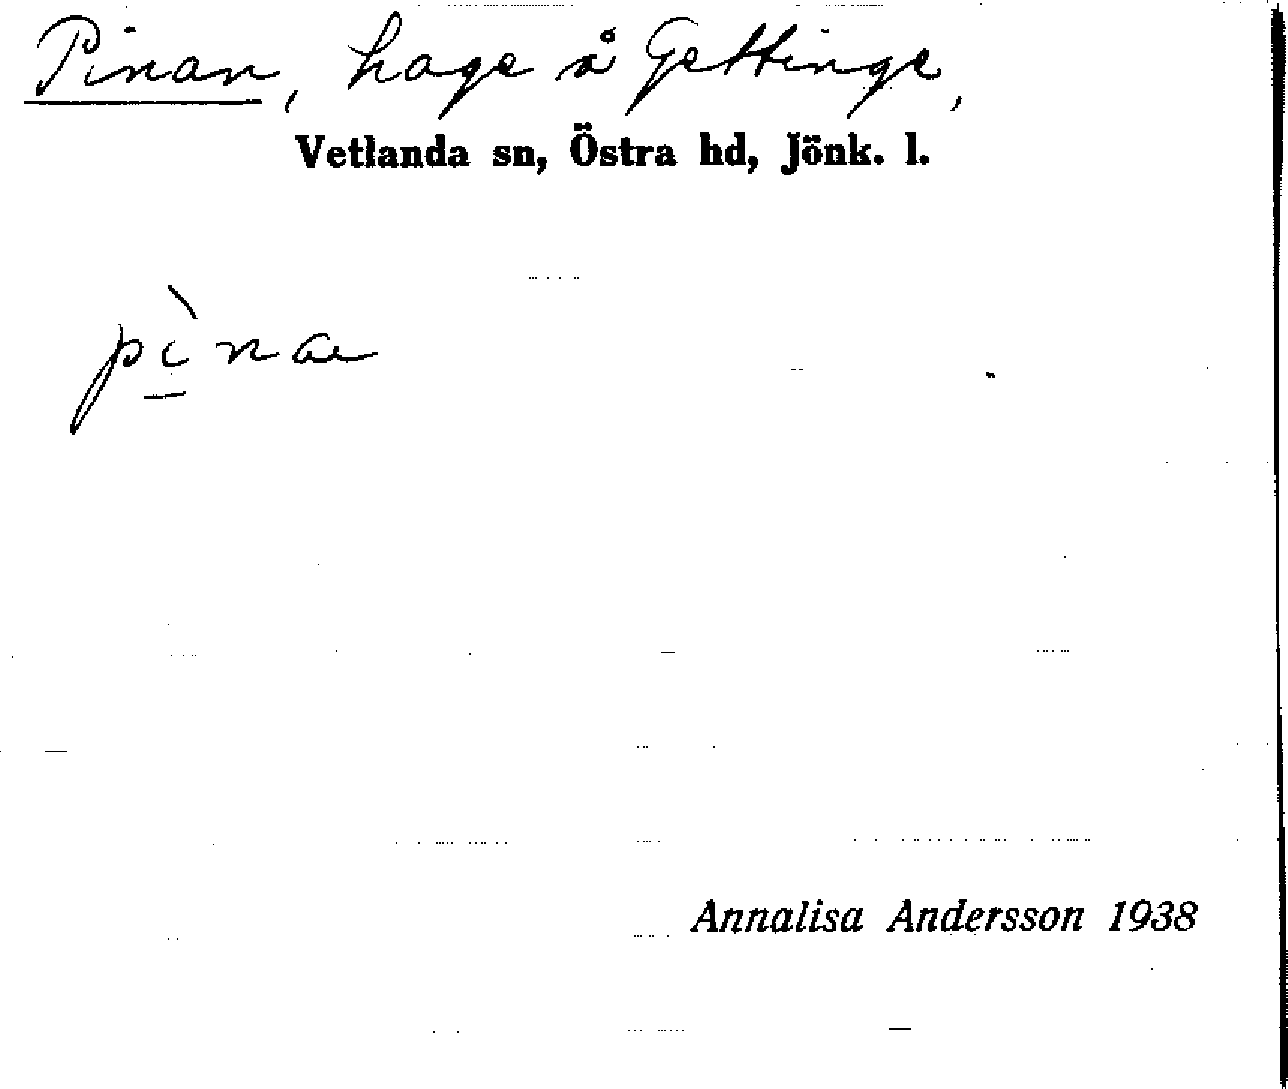 Pinan, hage å Gettinge,
Vetlanda sn, Östra hd, Jönk. l.
pì̱na
Annalisa Andersson 1938